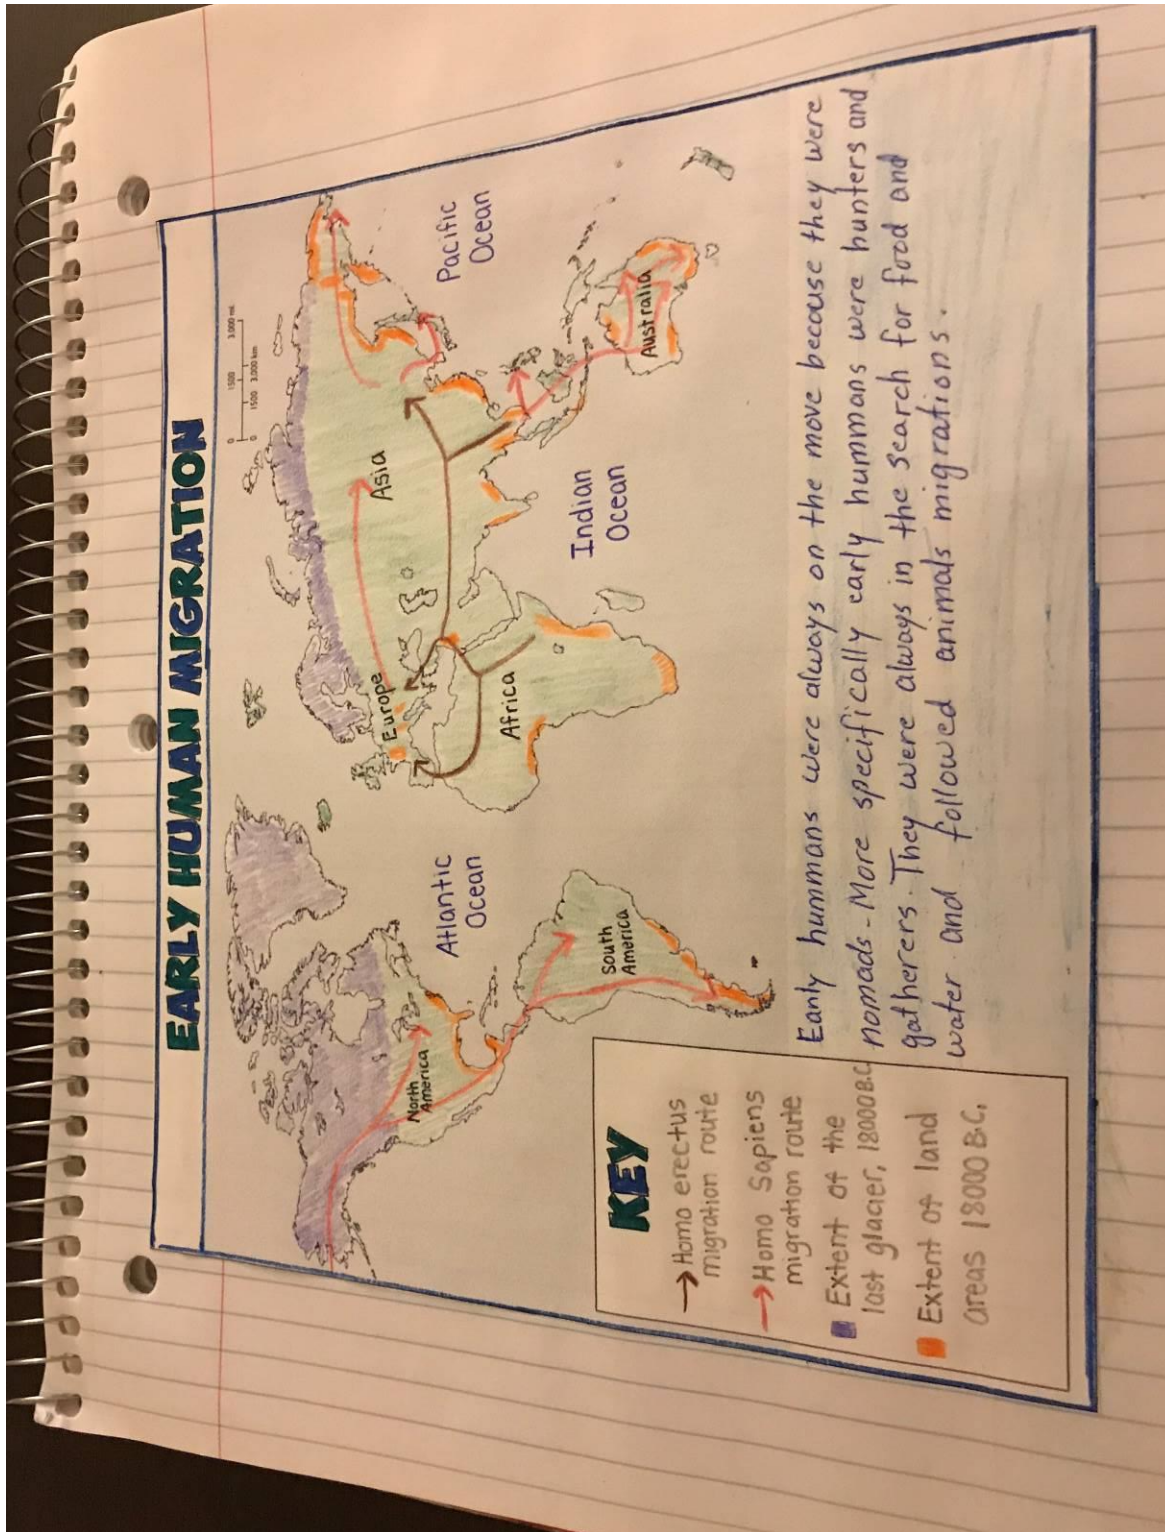 EARLY HUMAN MIGRATION
1500 3,000 mi.
0
0 1500 3,000 km
North
America
South
America
Atlantic
Ocean
Europe
Africa
Asia
Indian
Ocean
Pacific
Ocean
Australia
KEY
Homo erectus
migration route
Homo Sapiens
migration route
Extent of the
last glacier, 18000 B.C.
Extent of land
areas 18000 B.C.
Early hummans were always on the move because they were
nomads-More specifically early hummans were hunters and
gatherers. They were always in the search for food and
water and followed animals migrations.